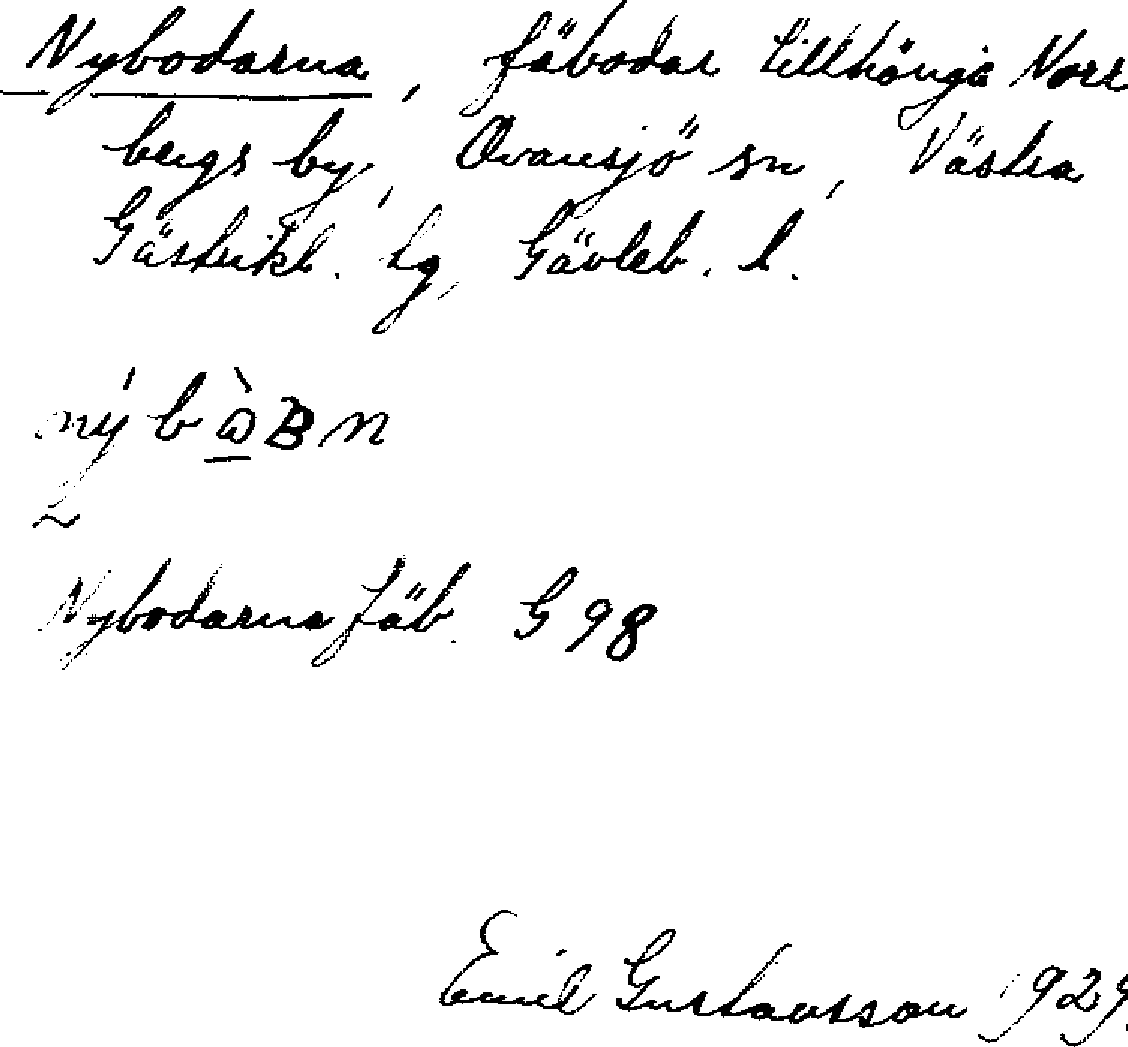 Nybodarna, fäbodar tillhöriga Norr
bergs by, Ovansjö sn, Västra
Gästrikl. hg, Gävleb. l.
Nybodarna fäb. G 98
Emil Gustavsson 1929.